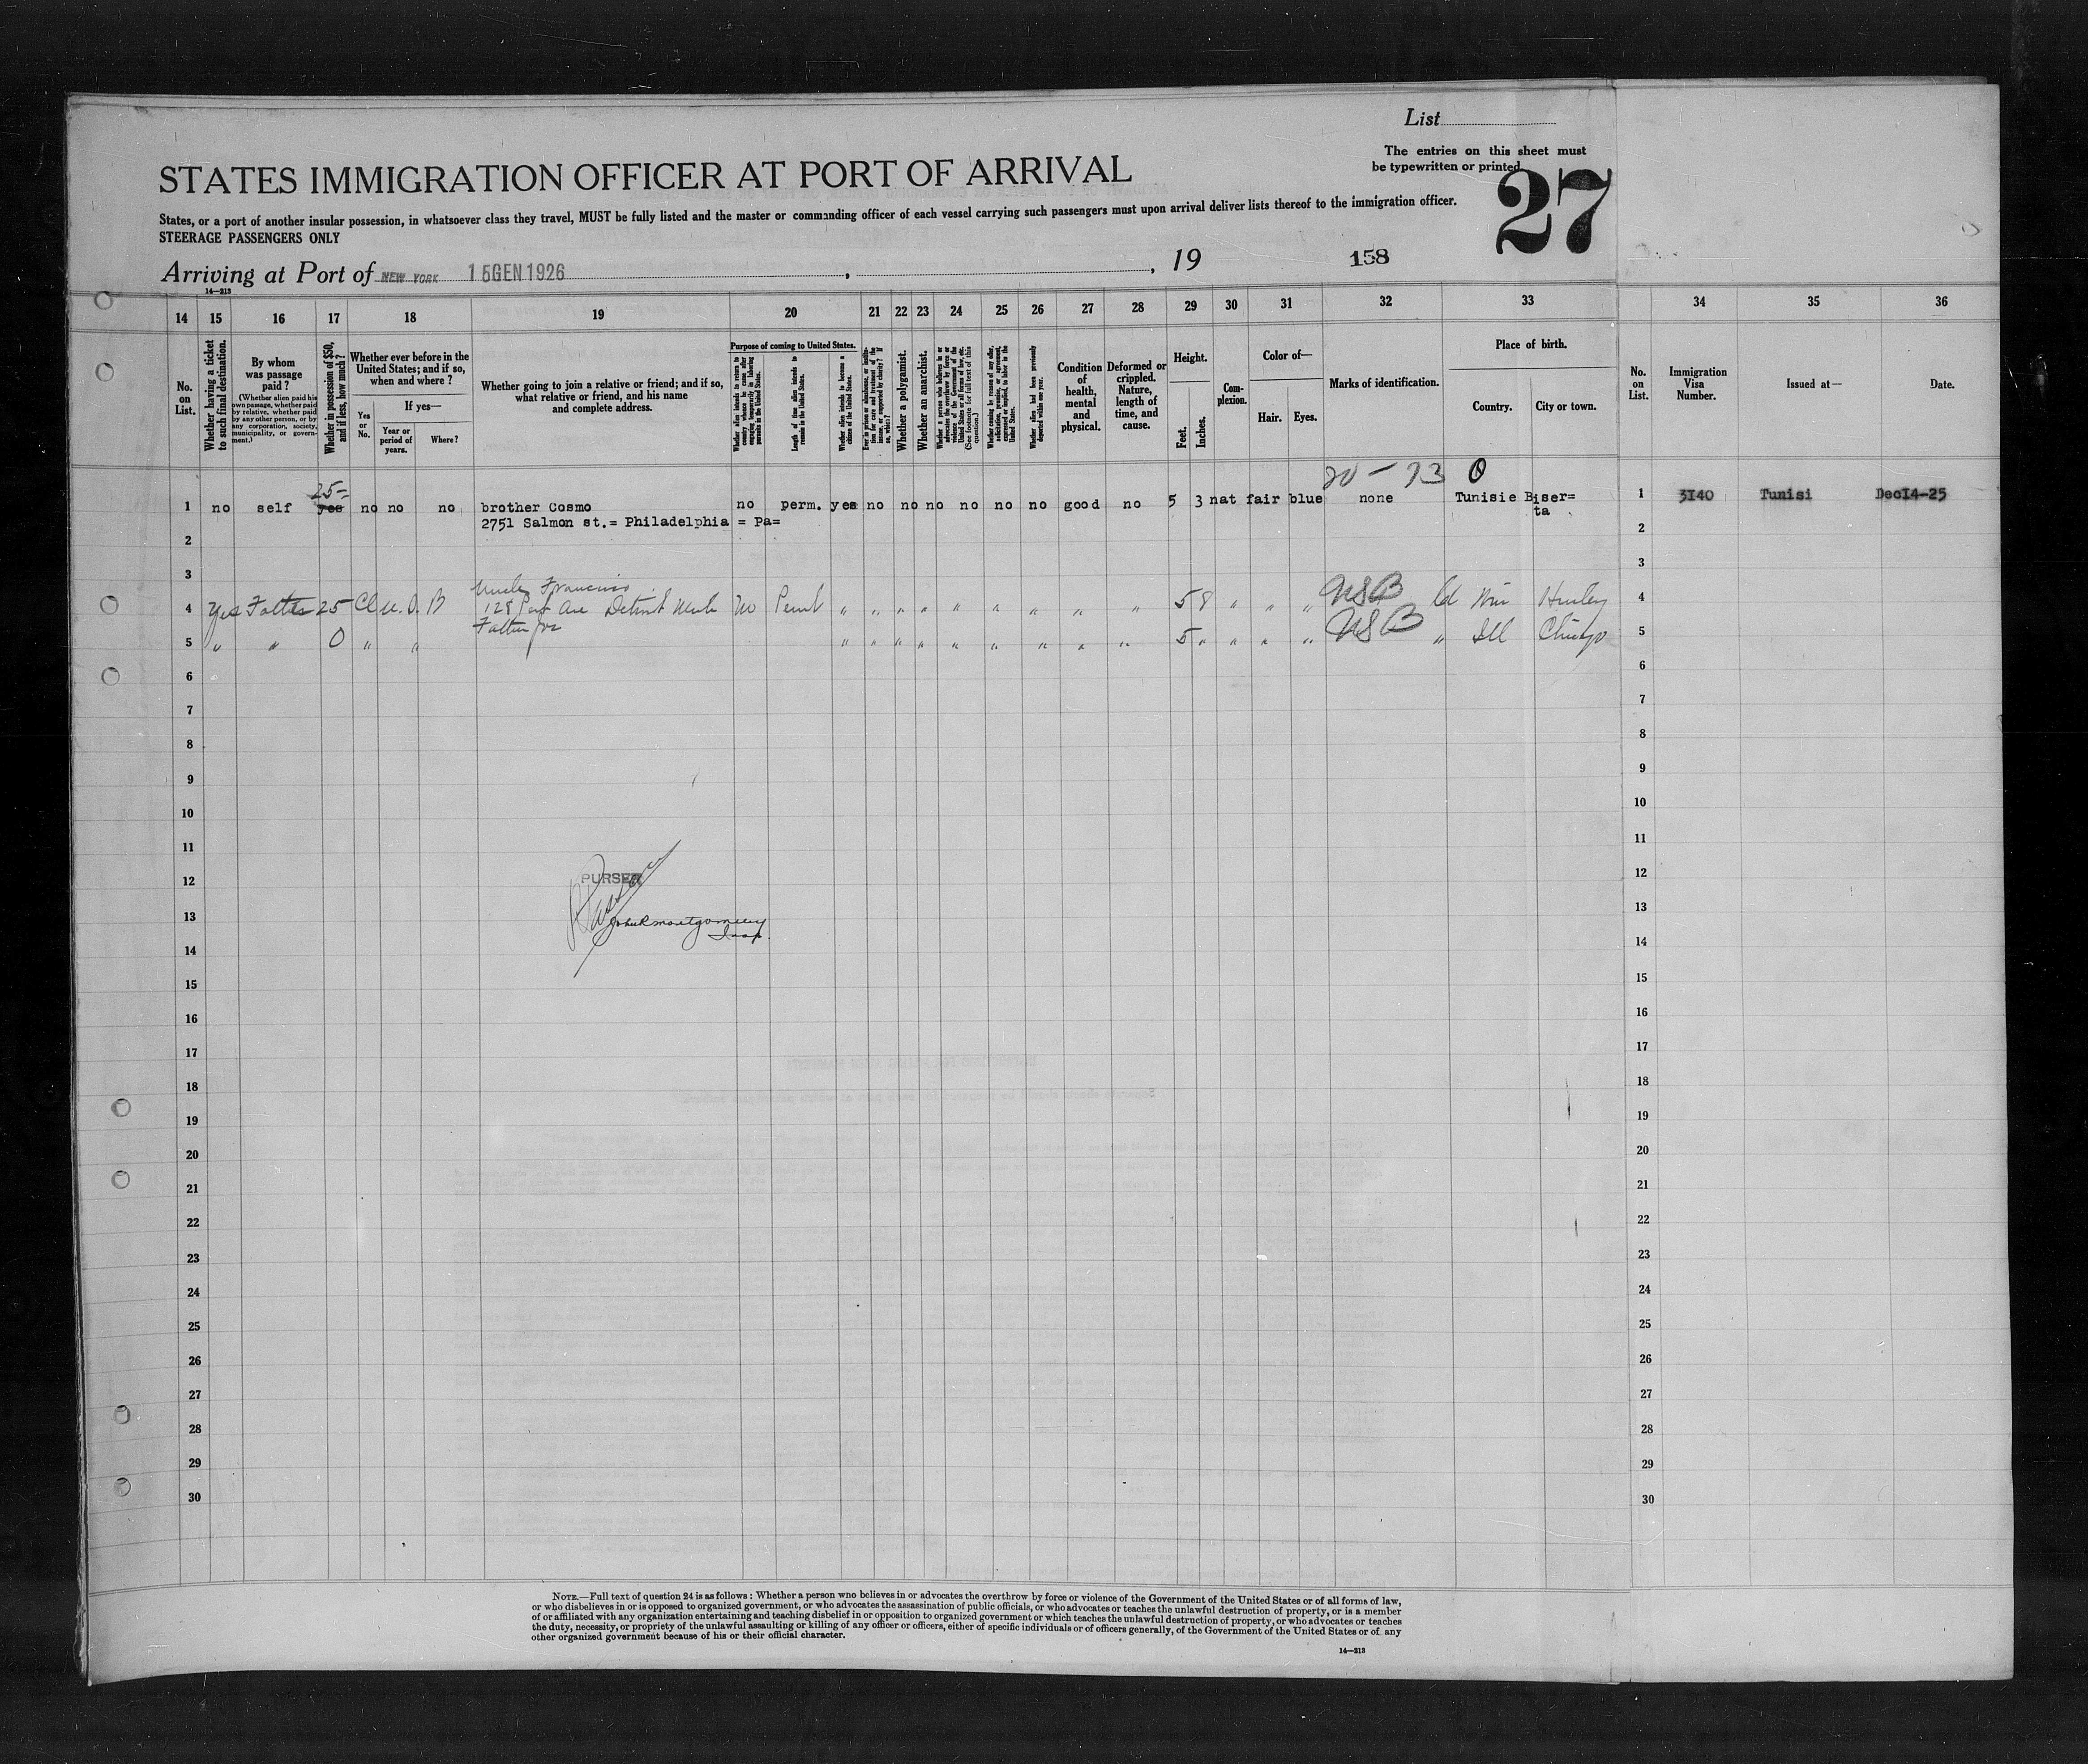 List
The entries on this sheet must
be typewritten or printed.
27
STATES IMMIGRATION OFFICER AT PORT OF ARRIVAL
States, or a port of another insular possession, in whatsoever class they travel, MUST be fully listed and the master or commanding officer of each vessel carrying such passengers must upon arrival deliver lists thereof to the immigration officer.
STEERAGE PASSENGERS ONLY
Arriving at Port of NEW YORK 15GEN1926 , , 19 158
14—213
14 15 16 17 18 19 20 21 22 23 24 25 26 27 28 29 30 31 32 33 34 35 36
No. on List.
Whether having a ticket to such final destination.
By whom was passage paid?
(Whether alien paid his own passage, whether paid by relative, whether paid by any other person, or by any corporation, society, municipality, or government.)
Whether in possession of $50, and if less, how much?
Whether ever before in the United States; and if so, when and where?
Yes or No.
If yes—
Year or period of years.
Where?
Whether going to join a relative or friend; and if so, what relative or friend, and his name and complete address.
Purpose of coming to United States.
Whether alien intends to return to country whence he came after engaging temporarily in laboring pursuits in the United States.
Length of time alien intends to remain in the United States.
Whether alien intends to become a citizen of the United States.
Ever in prison or almshouse, or institution for care and treatment of the insane, or supported by charity? If so, which?
Whether a polygamist.
Whether an anarchist.
Whether a person who believes in or advocates the overthrow by force or violence of the Government of the United States or all forms of law, etc. (See footnote for full text of this question.)
Whether coming by reason of any offer, solicitation, promise, or agreement, expressed or implied, to labor in the United States.
Whether alien had been previously deported within one year.
Condition of health, mental and physical.
Deformed or crippled. Nature, length of time, and cause.
Height.
Feet.
Inches.
Complexion.
Color of—
Hair.
Eyes.
Marks of identification.
Place of birth.
Country.
City or town.
No. on List.
Immigration Visa Number.
Issued at—
Date.
25- 20 - 73 0
1 no self yes no no no brother Cosmo no perm. yes no no no no no no good no 5 3 nat fair blue none Tunisie Biser= 1 3140 Tunisi Dec14-25
2751 Salmon st.= Philadelphia = Pa= ta
2 2
3 3
Uncle Francisco
4 Yes Father 25 128 Ave Detroit No Permt " " " " " " " " " 5 8 " " " USB Hurley 4
Father
5 " " 0 " " " " " " " " " " " 5 " " " " USB " Ill Chicago 5
6 6
7 7
8 8
9 9
10 10
11 11
12 PURSER 12
13 John R Montgomery 13
Insp.
14 14
15 15
16 16
17 17
18 18
19 19
20 20
21 21
22 22
23 23
24 24
25 25
26 26
27 27
28 28
29 29
30 30
NOTE.—Full text of question 24 is as follows: Whether a person who believes in or advocates the overthrow by force or violence of the Government of the United States or of all forms of law,
or who disbelieves in or is opposed to organized government, or who advocates the assassination of public officials, or who advocates or teaches the unlawful destruction of property, or is a member
of or affiliated with any organization entertaining and teaching disbelief in or opposition to organized government or which teaches the unlawful destruction of property, or who advocates or teaches
the duty, necessity, or propriety of the unlawful assaulting or killing of any officer or officers, either of specific individuals or of officers generally, of the Government of the United States or of any
other organized government because of his or their official character.
14—213